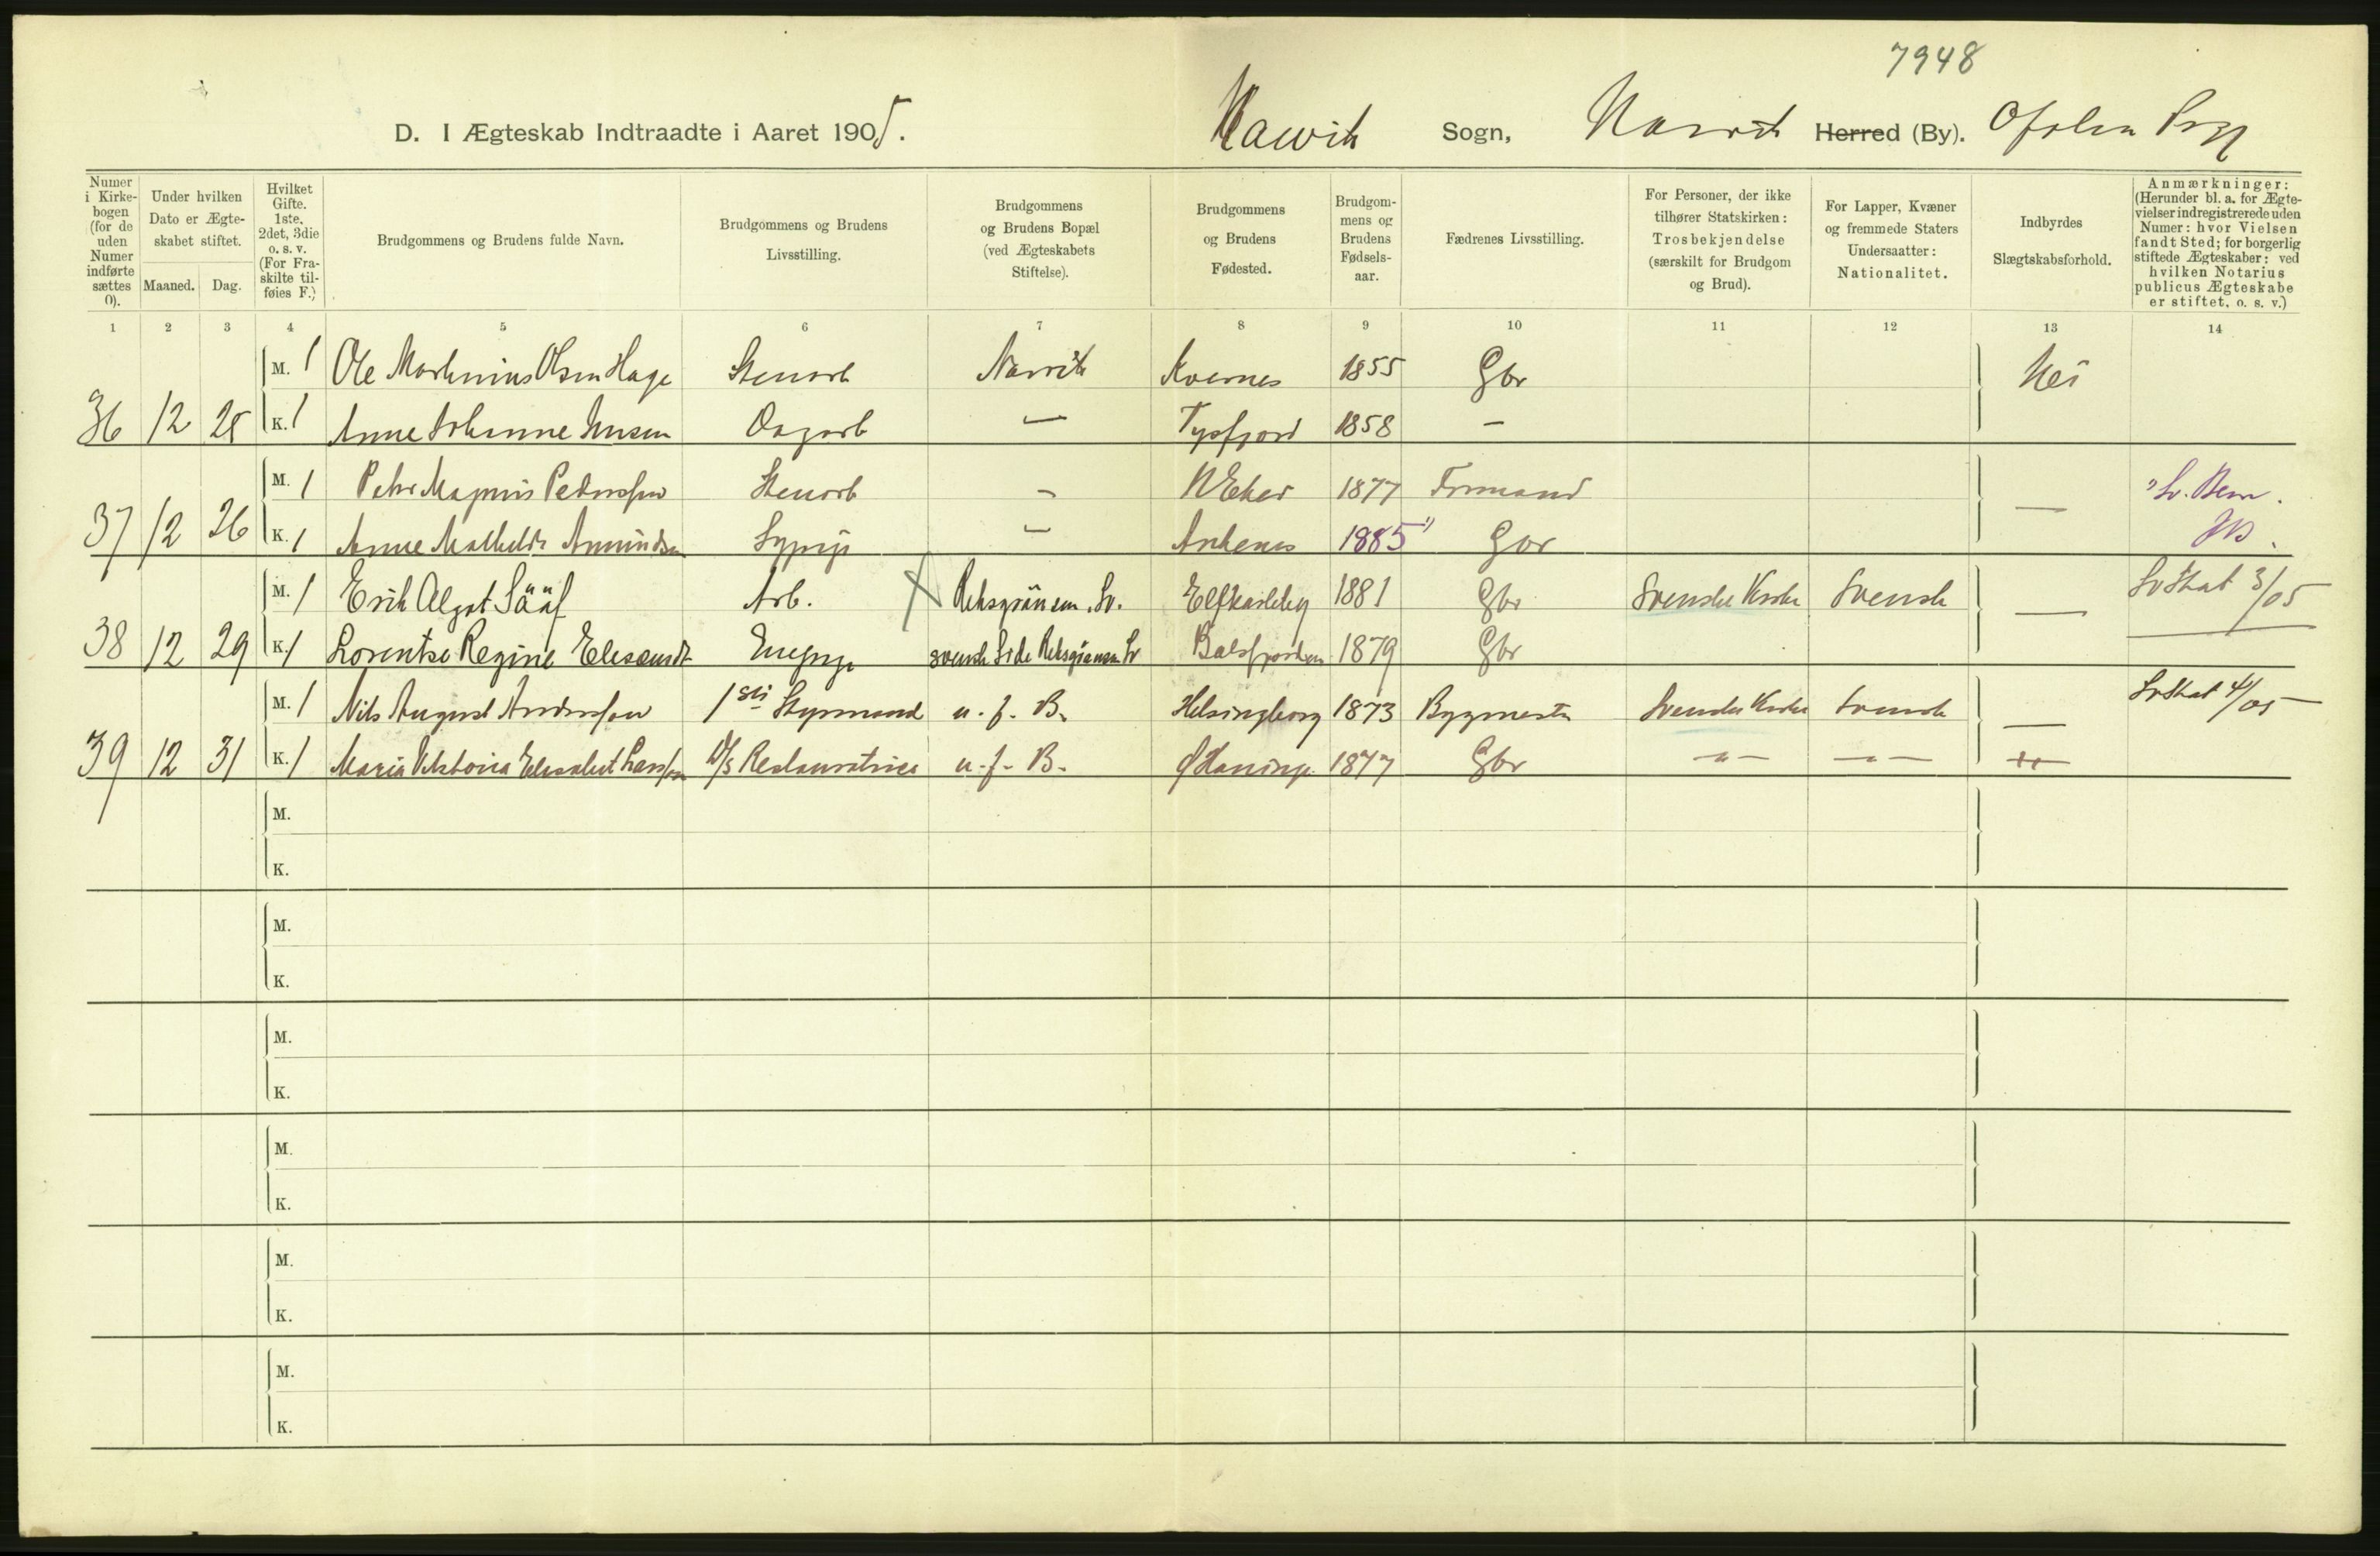 7948
D. I Ægteskab Indtraadte i Aaret 1905. Narvik Sogn, Narvik Herred (By). Ofoten
Numer i Kirkebogen (for de uden Numer indførte sættes 0).
Under hvilken Dato er Ægteskabet stiftet.
Maaned. Dag.
Hvilket Gifte. 1ste, 2det, 3die o. s. v. (For Fraskilte tilføies F.)
Brudgommens og Brudens fulde Navn.
Brudgommens og Brudens Livsstilling.
Brudgommens og Brudens Bopæl (ved Ægteskabets Stiftelse).
Brudgommens og Brudens Fødested.
Brudgommens og Brudens Fødselsaar.
Fædrenes Livsstilling.
For Personer, der ikke tilhører Statskirken: Trosbekjendelse (særskilt for Brudgom og Brud).
For Lapper, Kvæner og fremmede Staters Undersaatter: Nationalitet.
Indbyrdes Slægtskabsforhold.
Anmærkninger: (Herunder bl. a. for Ægtevielser indregistrerede uden Numer: hvor Vielsen fandt Sted; for borgerlig stiftede Ægteskaber: ved hvilken Notarius publicus Ægteskabe er stiftet, o. s. v.)
1 2 3 4 5 6 7 8 9 10 11 12 13 14
M. 1 Ole Martinius Olsen Hage Stenarb Narvik Kvernes 1855 Gbr Nei
36 12 25 K. 1 Anne Johanne Jensen Dagarb — Tysfjord 1858 —
M. 1 Peter Magnus Pederssen Stenarb — N Eker 1877 Formand
37 12 26 K. 1 Anne Mathilde Amundsen Sypige — Ankenes 1885 Gbr —
M. 1 Erik Algot Sääf Arb. Riksgränsen. Sv. Elfkarleby 1881 Gbr Svenske Kirke Svensk Sv Skat 3/05
38 12 29 K. 1 Lorentse Regine Elesæusdt svensk Side Riksgränsen Sv Balsfjorden 1879 Gbr —
M. 1 Nils August Andersson 1ste Styrmand u. f. B. Helsingborg 1873 Bygmester Svenske Kirke Svensk Sv Skat 4/05
39 12 31 K. 1 Maria Viktoria Elisabet Larsson D/S Restauratrice u. f. B. 1877 Gbr —"— —"—
M.
K.
M.
K.
M.
K.
M.
K.
M.
K.
M.
K.